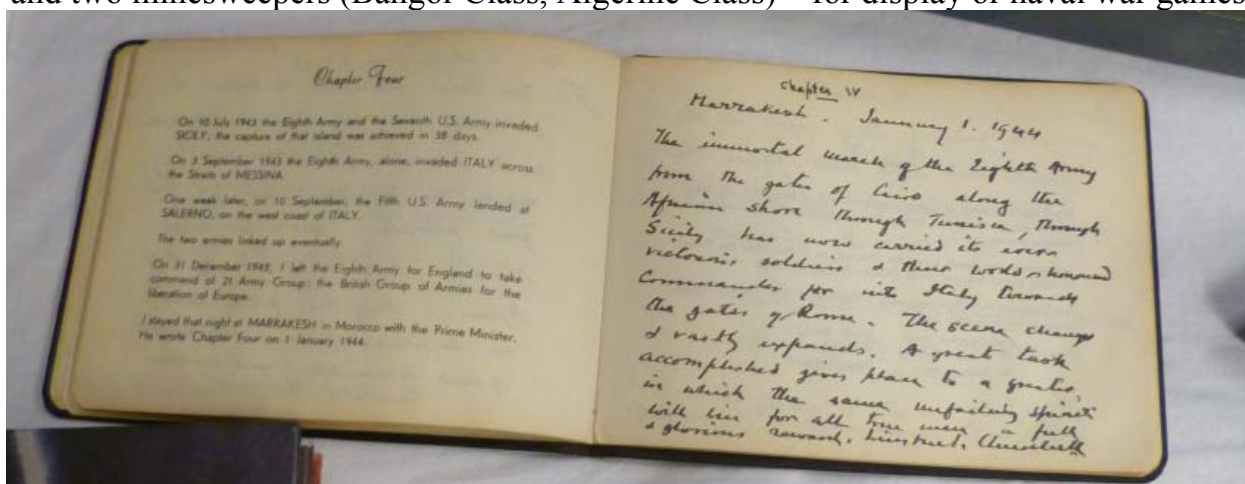 and two minesweepers (Bangor Class, Algerine Class) – for display of naval war games
Chapter Four
On 10 July 1943 the Eighth Army and the Seventh U.S. Army invaded
SICILY; the capture of that island was achieved in 38 days.
On 3 September 1943 the Eighth Army, alone, invaded ITALY across
the Straits of MESSINA.
One week later, on 10 September, the Fifth U.S. Army landed at
SALERNO, on the west coast of ITALY.
The two armies linked up eventually.
On 31 December 1943, I left the Eighth Army for England to take
command of 21 Army Group: the British Group of Armies for the
liberation of Europe.
I stayed that night at MARRAKESH in Morocco with the Prime Minister.
He wrote Chapter Four on 1 January 1944.
Chapter IV
Marrakesh. January 1. 1944
The immortal march of the Eighth Army
from the gates of Cairo along the
African shore through Tunisia, through
Sicily has now carried its ever
victorious soldiers & their world-honoured
Commander far into Italy towards
the gates of Rome. The scene changes
& vastly expands. A great task
accomplished gives place to a greater,
in which the same unfailing spirit
will win for all true men a full
& glorious reward. Winston S. Churchill